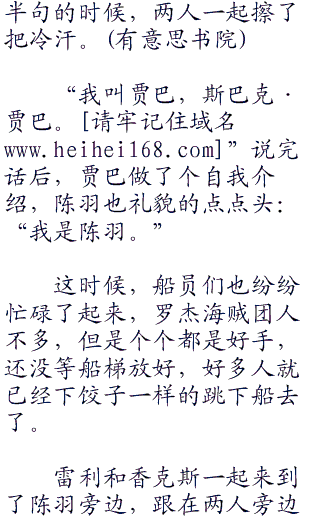 半句的时候，两人一起擦了
把冷汗。(有意思书院)
“我叫贾巴，斯巴克·
贾巴。[请牢记住域名
www.heihei168.com]”说完
话后，贾巴做了个自我介
绍，陈羽也礼貌的点点头：
“我是陈羽。”
这时候，船员们也纷纷
忙碌了起来，罗杰海贼团人
不多，但是个个都是好手，
还没等船梯放好，好多人就
已经下饺子一样的跳下船去
了。
雷利和香克斯一起来到
了陈羽旁边，跟在两人旁边